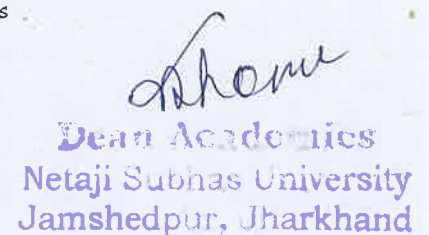 s
Dean Academics
Netaji Subhas University
Jamshedpur, Jharkhand